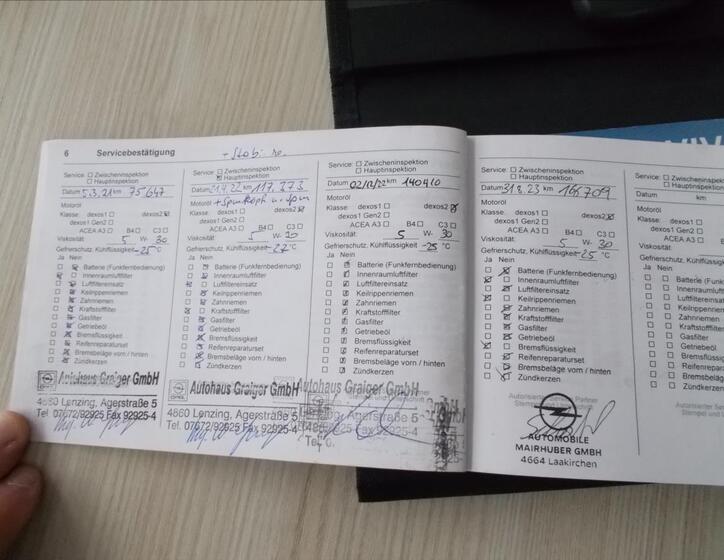 6 Servicebestätigung
Service: Zwischeninspektion
Hauptinspektion
Datum 5.3.21 km 75647
Motoröl
Klasse: dexos1 dexos2
dexos1 Gen2
ACEA A3 B4 C3
Viskosität: 5 W- 30
Gefrierschutz, Kühlflüssigkeit -25 °C
Ja Nein
Batterie (Funkfernbedienung)
Innenraumluftfilter
Luftfiltereinsatz
Keilrippenriemen
Zahnriemen
Kraftstofffilter
Gasfilter
Getriebeöl
Bremsflüssigkeit
Reifenreparaturset
Bremsbeläge vorn / hinten
Zündkerzen
Autohaus Graiger GmbH
4860 Lenzing, Agerstraße 5
Tel. 07672/92925 Fax 92925-4
Service: Zwischeninspektion
Hauptinspektion
Datum 21.4.22 km 117.373
Motoröl
Klasse: dexos1 dexos2
dexos1 Gen2
ACEA A3 B4 C3
Viskosität: 5 W- 30
Gefrierschutz, Kühlflüssigkeit -27 °C
Ja Nein
Batterie (Funkfernbedienung)
Innenraumluftfilter
Luftfiltereinsatz
Keilrippenriemen
Zahnriemen
Kraftstofffilter
Gasfilter
Getriebeöl
Bremsflüssigkeit
Reifenreparaturset
Bremsbeläge vorn / hinten
Zündkerzen
OPEL
Autohaus Graiger GmbH
4860 Lenzing, Agerstraße 5
Tel. 07672/92925 Fax 92925-4
Service: Zwischeninspektion
Hauptinspektion
Datum 02/12/22 km 140410
Motoröl
Klasse: dexos1 dexos2
dexos1 Gen2
ACEA A3 B4 C3
Viskosität: 5 W- 30
Gefrierschutz, Kühlflüssigkeit -25 °C
Ja Nein
Batterie (Funkfernbedienung)
Innenraumluftfilter
Luftfiltereinsatz
Keilrippenriemen
Zahnriemen
Kraftstofffilter
Gasfilter
Getriebeöl
Bremsflüssigkeit
Reifenreparaturset
Bremsbeläge vorn / hinten
Zündkerzen
Autohaus Graiger GmbH
Agerstraße 5
Service: Zwischeninspektion
Hauptinspektion
Datum 31.8.23 km
Motoröl
Klasse: dexos1 dexos2
dexos1 Gen2
ACEA A3 B4 C3
Viskosität: 5 W- 30
Gefrierschutz, Kühlflüssigkeit -25 °C
Ja Nein
Batterie (Funkfernbedienung)
Innenraumluftfilter
Luftfiltereinsatz
Keilrippenriemen
Zahnriemen
Kraftstofffilter
Gasfilter
Getriebeöl
Bremsflüssigkeit
Reifenreparaturset
Bremsbeläge vorn / hinten
Zündkerzen
Autorisierter Partner
AUTOMOBILE
MAIRHUBER GMBH
4664 Laakirchen
Service: Zwischeninspektion
Hauptinspektion
Datum km
Motoröl
Klasse: dexos1
dexos1 Gen2
ACEA A3
Viskosität:
Gefrierschutz, Kühlflüssigkeit
Ja Nein
Batterie (Funkfernbedienung)
Innenraumluftfilter
Luftfiltereinsatz
Keilrippenriemen
Zahnriemen
Kraftstofffilter
Gasfilter
Getriebeöl
Bremsflüssigkeit
Reifenreparaturset
Bremsbeläge vorn
Zündkerzen